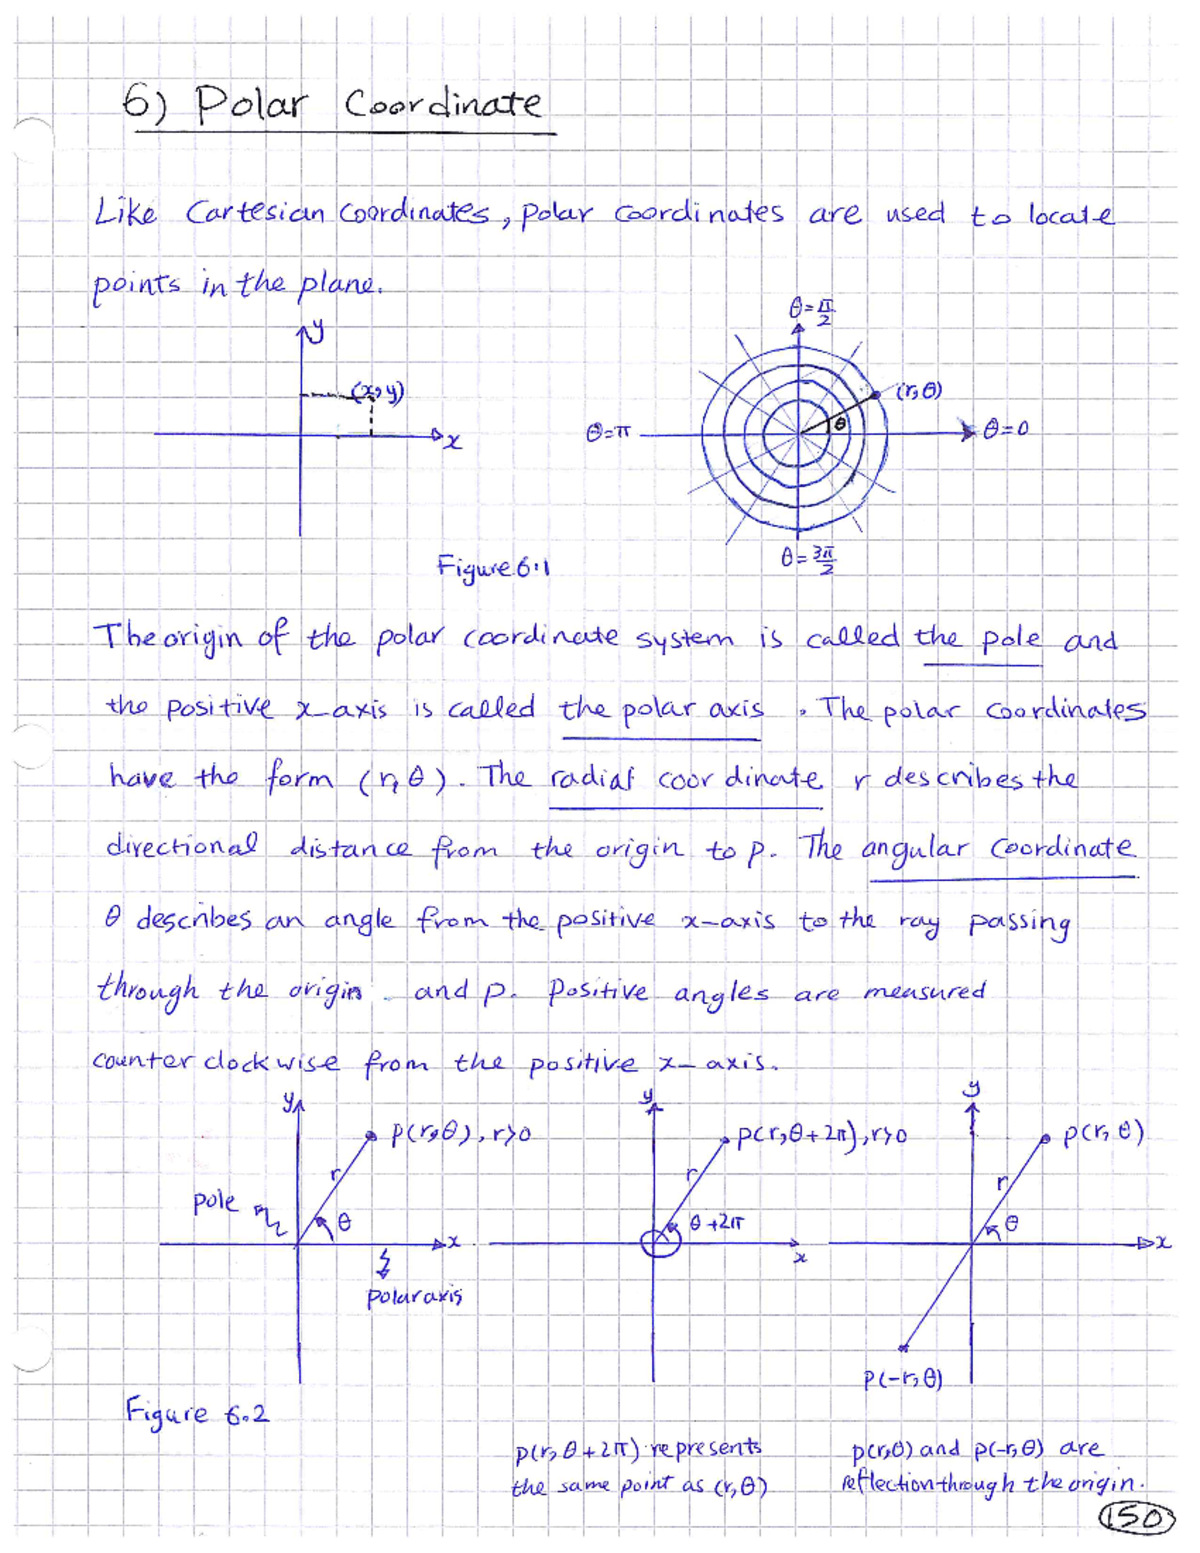 6) Polar Coordinate
Like Cartesian Coordinates, polar coordinates are used to locate
points in the plane.
y
(x,y)
x
θ=π/2
(r,θ)
θ
θ=π
θ=0
θ=3π/2
Figure 6.1
The origin of the polar coordinate system is called the pole and
the positive x-axis is called the polar axis. The polar coordinates
have the form (r,θ). The radial coordinate r describes the
directional distance from the origin to p. The angular coordinate
θ describes an angle from the positive x-axis to the ray passing
through the origin and p. Positive angles are measured
counter clockwise from the positive x-axis.
y
p(r,θ), r>0
r
pole
θ
x
polar axis
y
p(r,θ+2π), r>0
r
θ+2π
x
y
p(r,θ)
r
θ
x
p(-r,θ)
Figure 6.2
p(r,θ+2π) represents
the same point as (r,θ)
p(r,θ) and p(-r,θ) are
reflection through the origin.
150